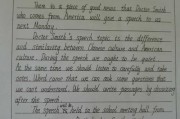 There is a piece of good news that Doctor Smith
who comes from America will give a speech to us
next Monday.
Doctor Smith's speech topic is the difference
and similarity between Chinese culture and American
culture. During the speech we ought to be quiet.
At the same time we should listen to carefully and take
notes. Word came that we can ask some questions that
we can't understand. We should write passages by
after the speech.
The speech will be held in the school meeting hall from